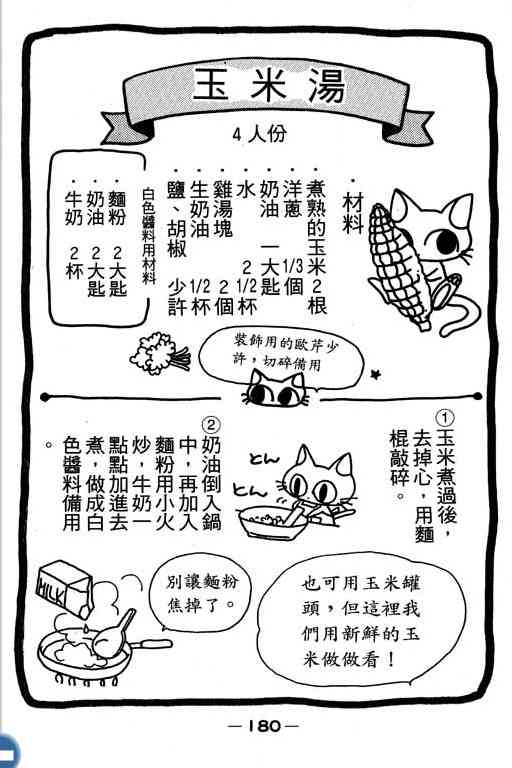 玉米湯
4人份
·材料
·煮熟的玉米 2根
·洋蔥 1/3個
·奶油 一大匙
·水 2 1/2杯
·雞湯塊 2個
·生奶油 1/2杯
·鹽、胡椒 少許
白色醬料用材料
·麵粉 2大匙
·奶油 2大匙
·牛奶 2杯
裝飾用的歐芹少
許，切碎備用
①玉米煮過後，
去掉心，用麵
棍敲碎。
とん
とん
②奶油倒入鍋
中，再加入
麵粉用小火
炒，牛奶一
點點加進去
煮，做成白
色醬料備用
。
MILK
別讓麵粉
焦掉了。
也可用玉米罐
頭，但這裡我
們用新鮮的玉
米做做看！
—180—